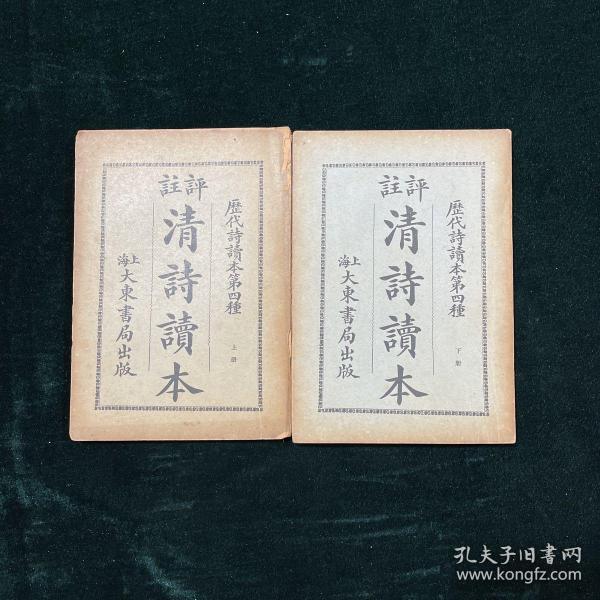 歷代詩讀本第四種
上册
評註
清詩讀本
上海
大東書局出版
歷代詩讀本第四種
下册
評註
清詩讀本
上海
大東書局出版
孔夫子旧书网
www.kongfz.com